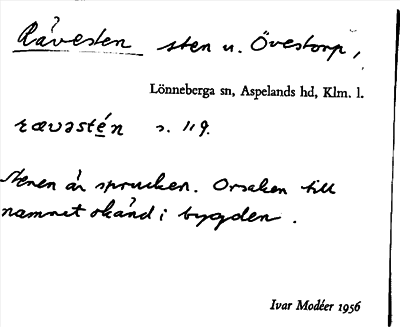 Rävesten sten u. Övestorp,
Lönneberga sn, Aspelands hd, Klm. l.
rævəstén s. 119.
Stenen är sprucken. Orsaken till
namnet okänd i bygden.
Ivar Modéer 1956